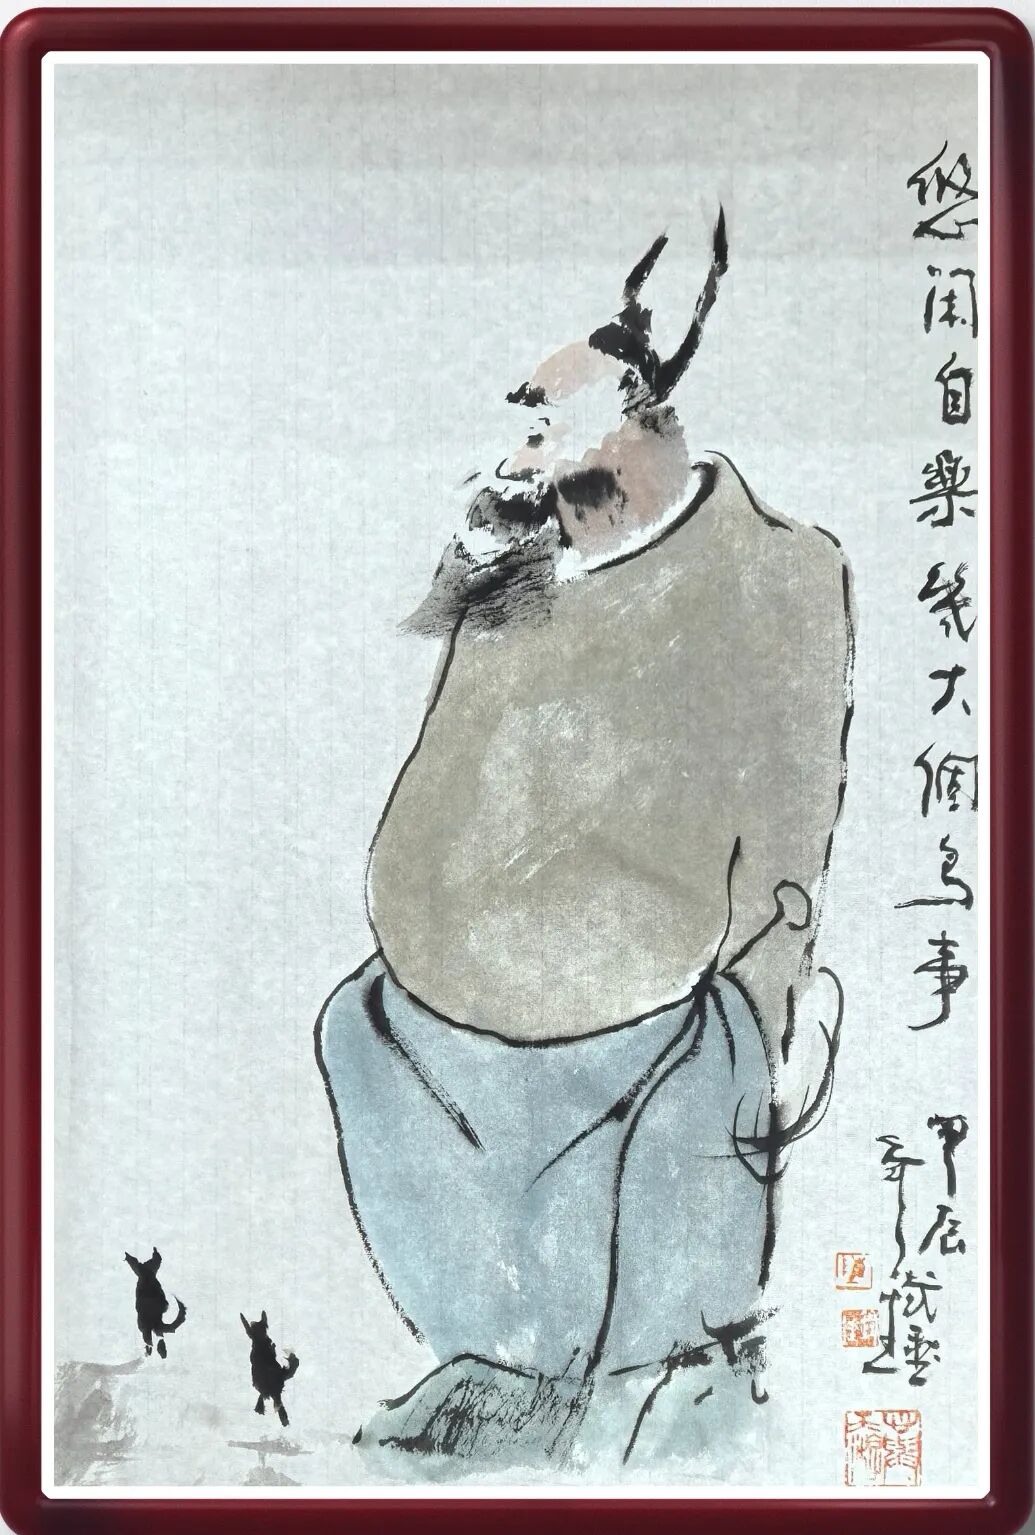 悠閑自樂幾大個鳥事
甲辰